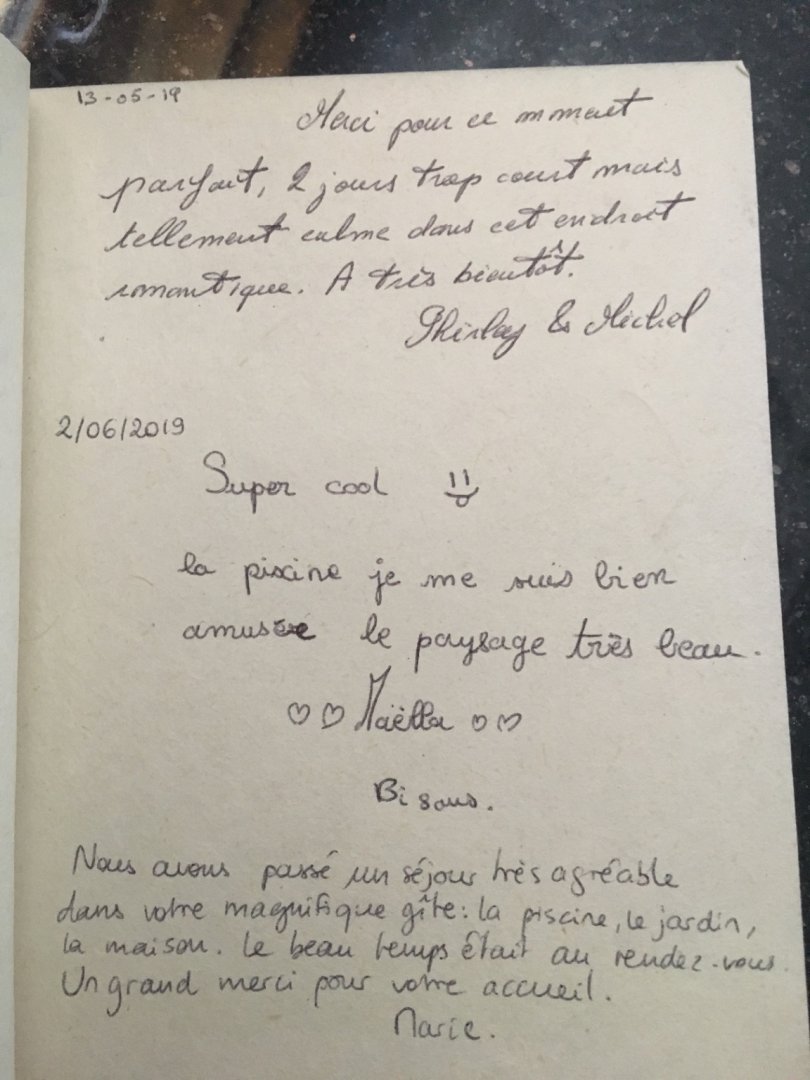 13-05-19
Merci pour ce mment
parfait, 2 jours trop court mais
tellement calme dans cet endroit
romantique. A très bientôt.
Shirley & Michel
2/06/2019
Super cool
la piscine je me suis bien
amusée le paysage très beau.
♡♡ Maëlla ♡♡
Bisous.
Nous avons passé un séjour très agréable
dans votre magnifique gîte: la piscine, le jardin,
la maison. Le beau temps était au rendez-vous.
Un grand merci pour votre accueil.
Marie.